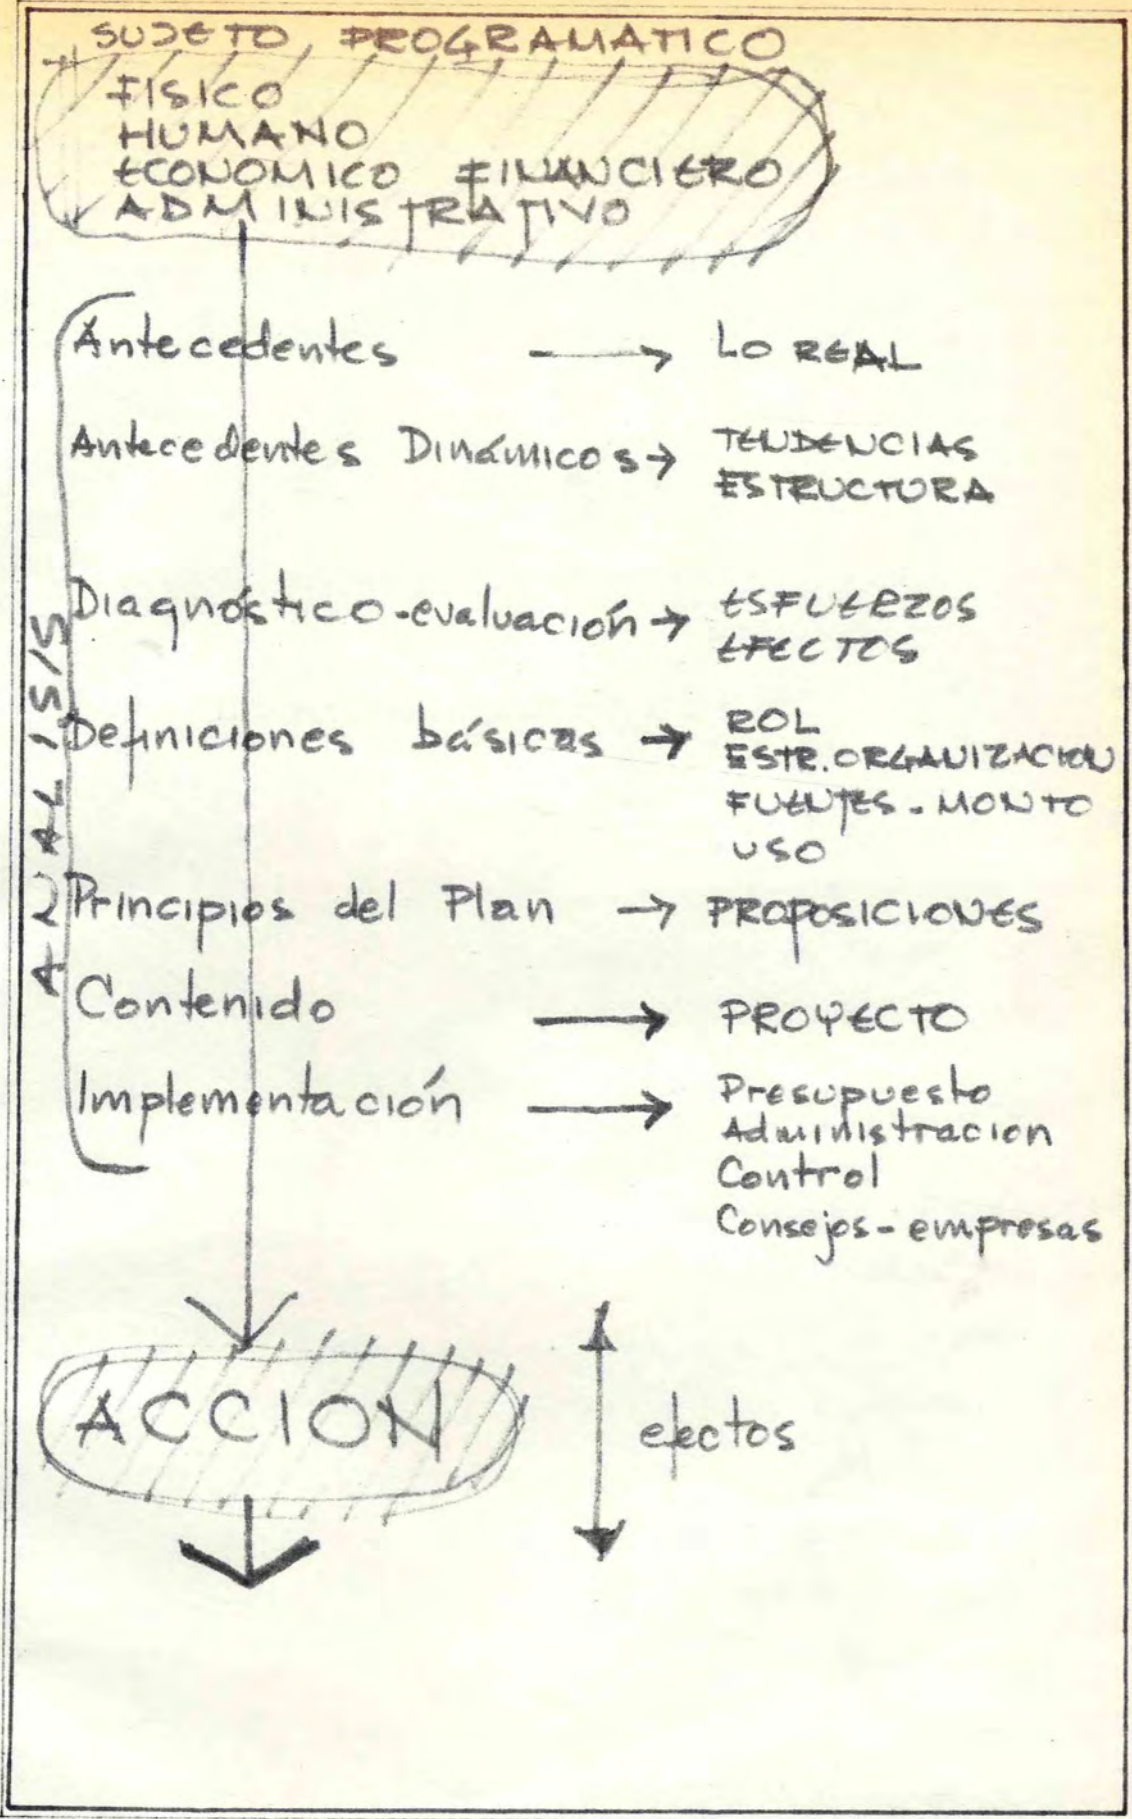 SUJETO PROGRAMATICO
FISICO
HUMANO
ECONOMICO FINANCIERO
ADMINISTRATIVO
ANALISIS
Antecedentes → LO REAL
Antecedentes Dinámicos → TENDENCIAS
ESTRUCTURA
Diagnóstico-evaluación → ESFUERZOS
EFECTOS
Definiciones básicas → ROL
ESTR. ORGANIZACION
FUENTES - MONTO
USO
Principios del Plan → PROPOSICIONES
Contenido → PROYECTO
Implementación → Presupuesto
Administracion
Control
Consejos - empresas
ACCION
efectos